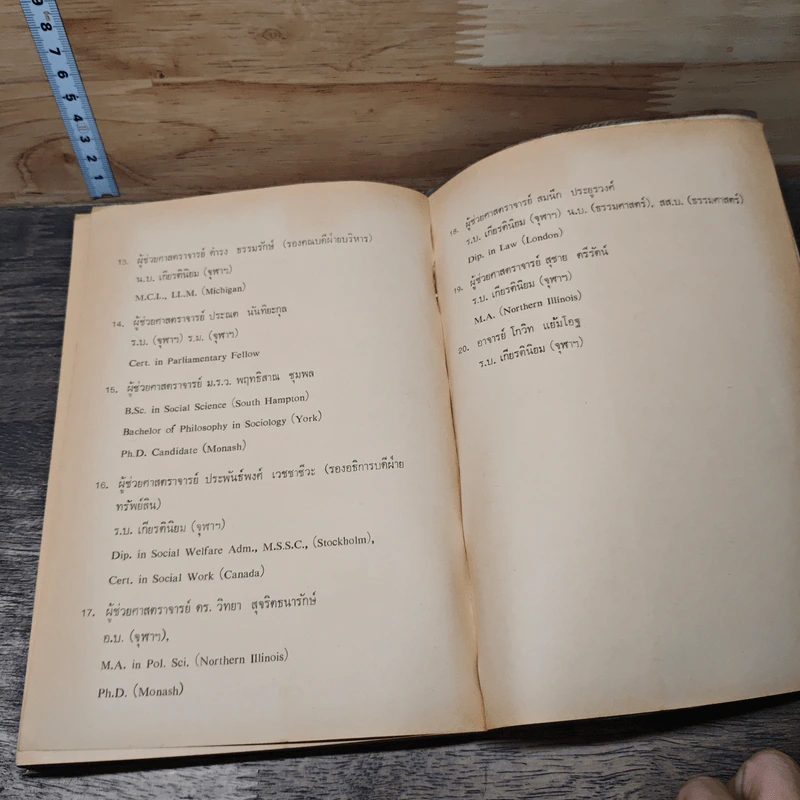 9 8 7 6 5 4 3 2 1
13. ผู้ช่วยศาสตราจารย์ ดำรง ธรรมรักษ์ (รองคณบดีฝ่ายบริหาร)
น.บ. เกียรตินิยม (จุฬาฯ)
M.C.L., LL.M. (Michigan)
14. ผู้ช่วยศาสตราจารย์ ประณต นันทิยะกุล
ร.บ. (จุฬาฯ) ร.ม. (จุฬาฯ)
Cert. in Parliamentary Fellow
15. ผู้ช่วยศาสตราจารย์ ม.ร.ว. พฤทธิสาณ ชุมพล
B.Sc. in Social Science (South Hampton)
Bachelor of Philosophy in Sociology (York)
Ph.D. Candidate (Monash)
16. ผู้ช่วยศาสตราจารย์ ประพันธ์พงศ์ เวชชาชีวะ (รองอธิการบดีฝ่าย
ทรัพย์สิน)
ร.บ. เกียรตินิยม (จุฬาฯ)
Dip. in Social Welfare Adm., M.S.S.C., (Stockholm),
Cert. in Social Work (Canada)
17. ผู้ช่วยศาสตราจารย์ ดร. วิทยา สุจริตธนารักษ์
อ.บ. (จุฬาฯ),
M.A. in Pol. Sci. (Northern Illinois)
Ph.D. (Monash)
18. ผู้ช่วยศาสตราจารย์ สมนึก ประยูรวงค์
ร.บ. เกียรตินิยม (จุฬาฯ) น.บ. (ธรรมศาสตร์), สส.บ. (ธรรมศาสตร์)
Dip. in Law (London)
19. ผู้ช่วยศาสตราจารย์ สุชาย ตรีรัตน์
ร.บ. เกียรตินิยม (จุฬาฯ)
M.A. (Northern Illinois)
20. อาจารย์ โกวิท แย้มโอฐ
ร.บ. เกียรตินิยม (จุฬาฯ)